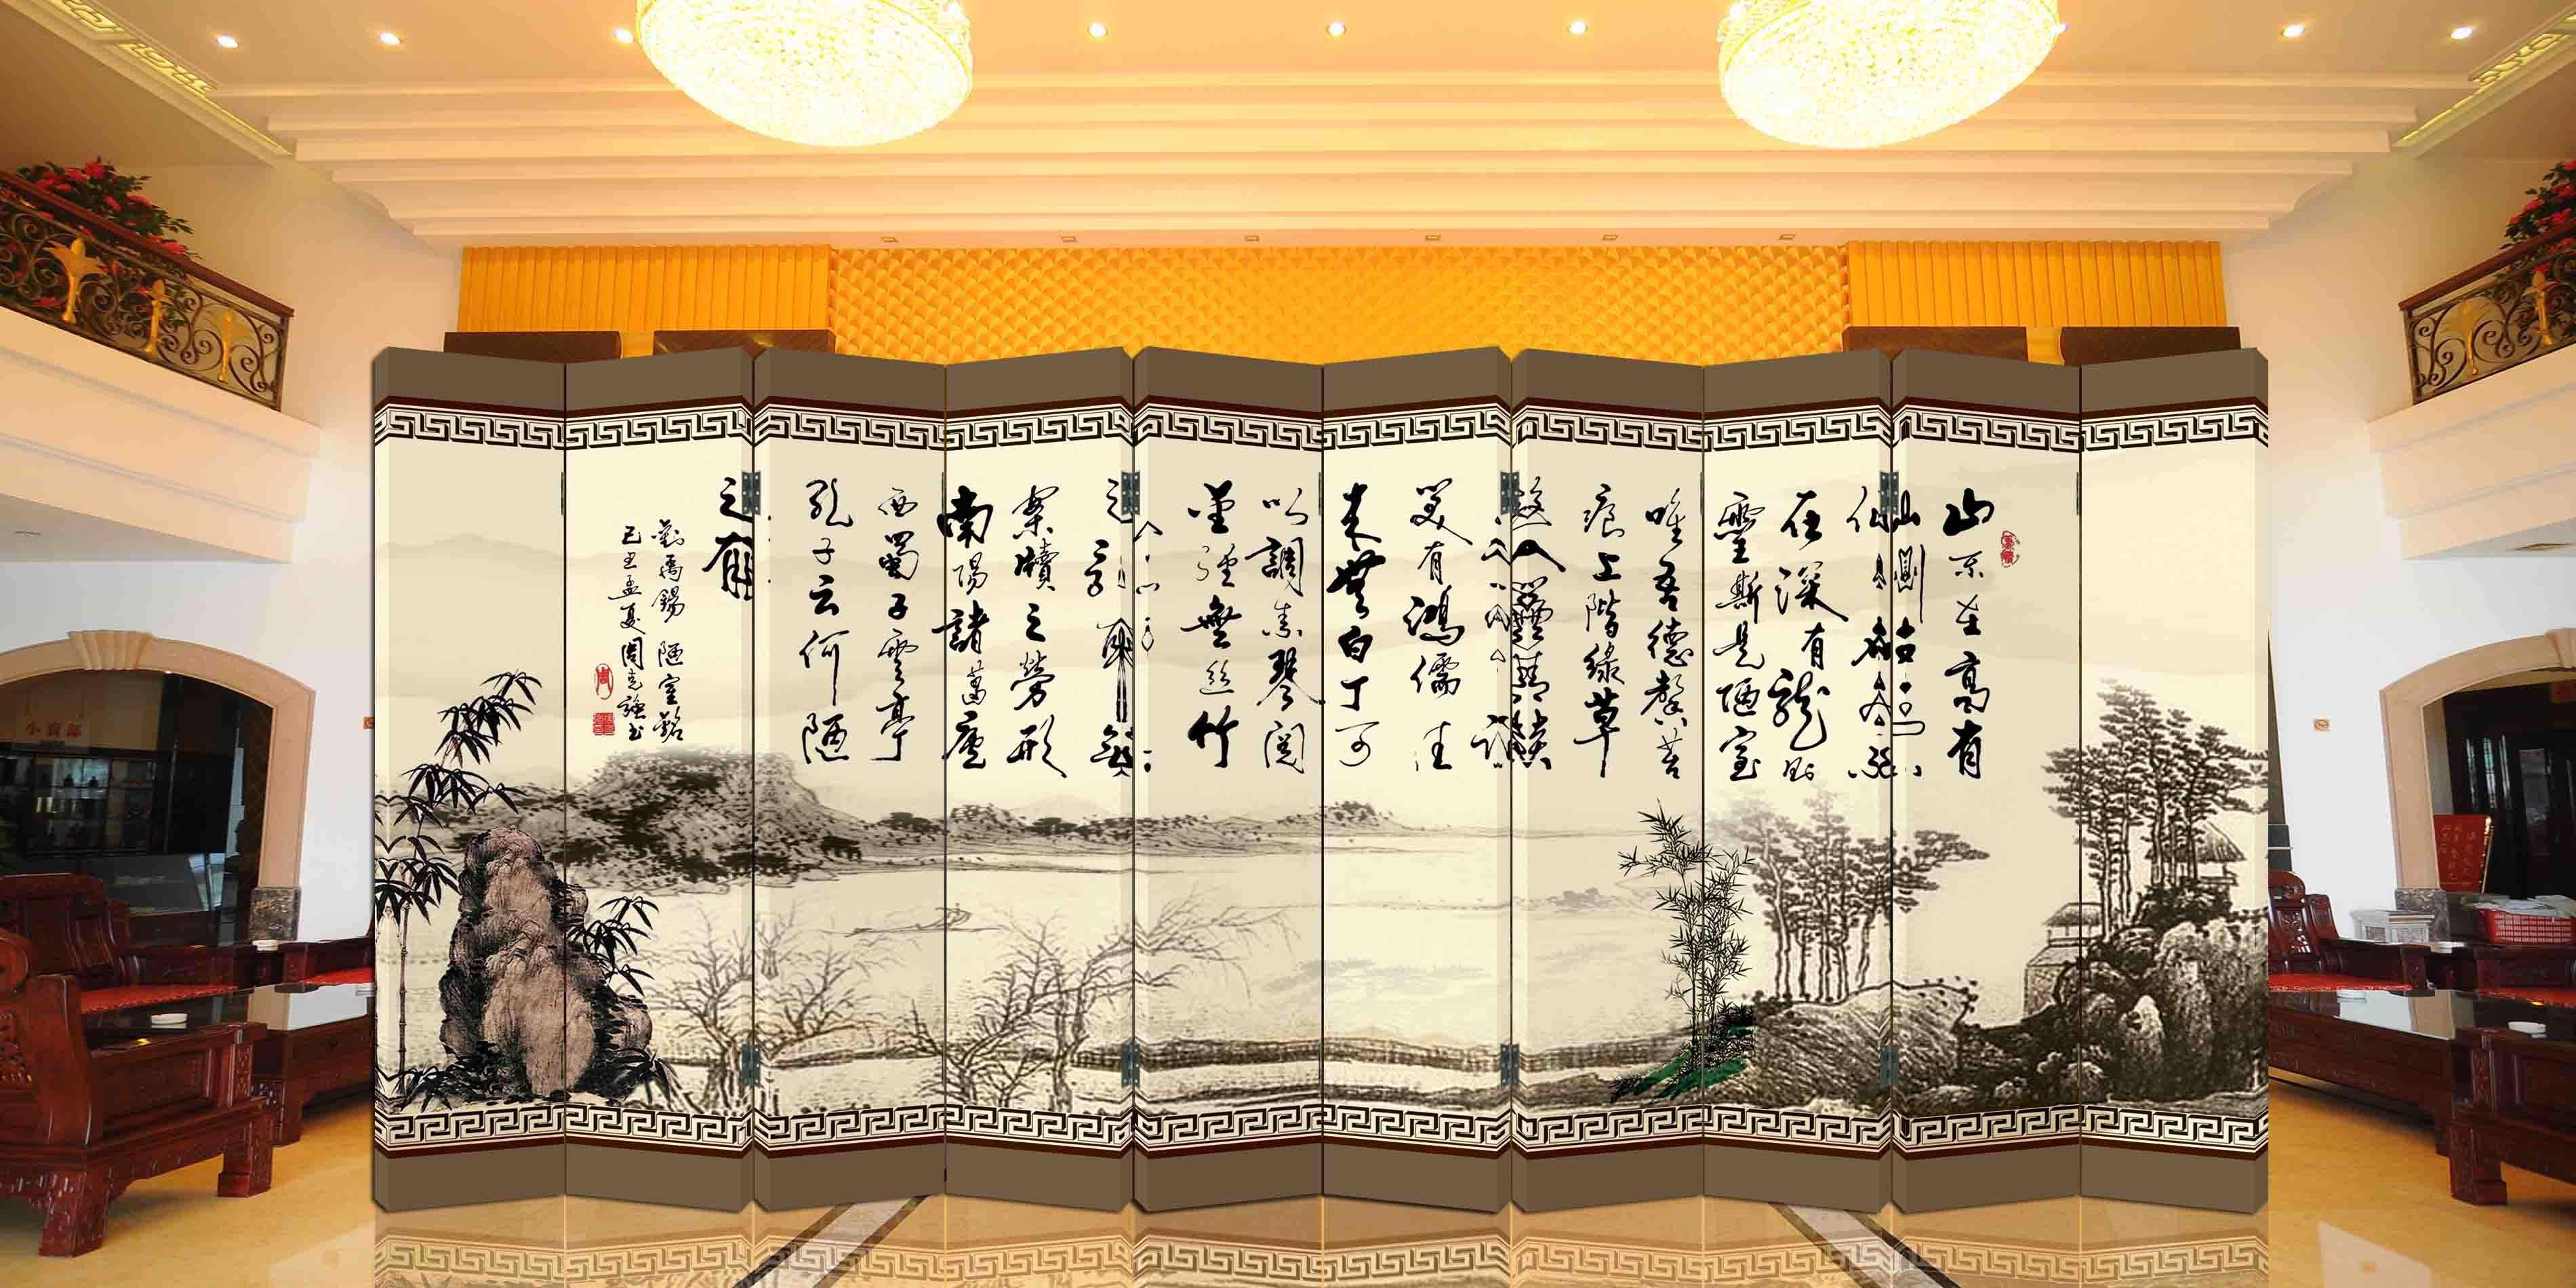 山不在高有
仙
在深有龍則
靈斯是陋室
唯吾德馨苔
痕上階綠草
入
笑有鴻儒往
來無白丁可
以調素琴閱
金經無絲竹
之
案牘之勞形
南陽諸葛廬
西蜀子雲亭
孔子云何陋
之有
劉禹錫 陋室銘
己丑孟夏周克強书
周
小賣部